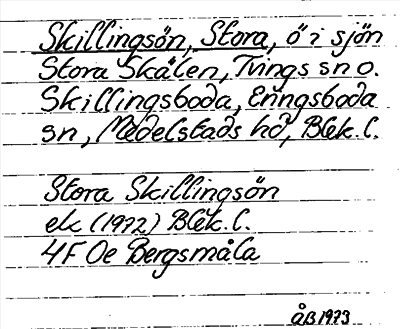 Skillingsön, Stora, ö i sjön
Stora Skålen, Tvings sn o.
Skillingsboda, Eringsboda
sn, Medelstads hd, Blek. l.
Stora Skillingsön
ek (1972) Blek. l.
4F 0e Bergsmåla
ÅB 1973